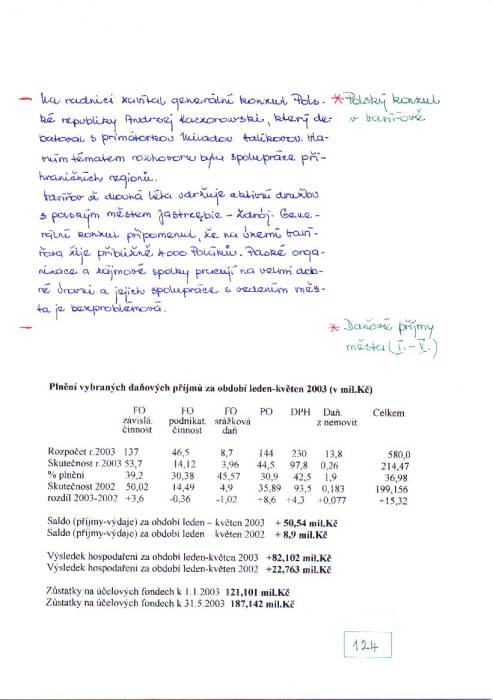 – Na radnici zavítal generální konzul Pols-
ké republiky Andrzej Kaczorowski, který de-
batoval s primátorkou Miladou Halíkovou. Hla-
vním tématem rozhovoru byla spolupráce pří-
hraničních regionů.
Havířov už dlouhá léta udržuje aktivní družbu
s polským městem Jastrzębie - Zdrój. Gene-
rální konzul připomenul, že na území Haví-
řova žije přibližně 4000 Poláků. Polské orga-
nizace a zájmové spolky pracují na velmi dob-
ré úrovni a jejich spolupráce s vedením měs-
ta je bezproblémová.
* Polský konzul
v Havířově
–
* Daňové příjmy
města (I.-V.)
Plnění vybraných daňových příjmů za období leden-květen 2003 (v mil.Kč)
FO FO FO PO DPH Daň. Celkem
závislá. podnikat. srážková z nemovit.
činnost činnost daň
Rozpočet r.2003 137 46,5 8,7 144 230 13,8 580,0
Skutečnost r.2003 53,7 14,12 3,96 44,5 97,8 0,26 214,47
% plnění 39,2 30,38 45,57 30,9 42,5 1,9 36,98
Skutečnost 2002 50,02 14,49 4,9 35,89 93,5 0,183 199,156
rozdíl 2003-2002 +3,6 -0,36 -1,02 +8,6 +4,3 +0,077 +15,32
Saldo (příjmy-výdaje) za období leden – květen 2003 + 50,54 mil.Kč
Saldo (příjmy-výdaje) za období leden – květen 2002 + 8,9 mil.Kč
Výsledek hospodaření za období leden-květen 2003 +82,102 mil.Kč
Výsledek hospodaření za období leden-květen 2002 +22,763 mil.Kč
Zůstatky na účelových fondech k 1.1.2003 121,101 mil.Kč
Zůstatky na účelových fondech k 31.5.2003 187,142 mil.Kč
124